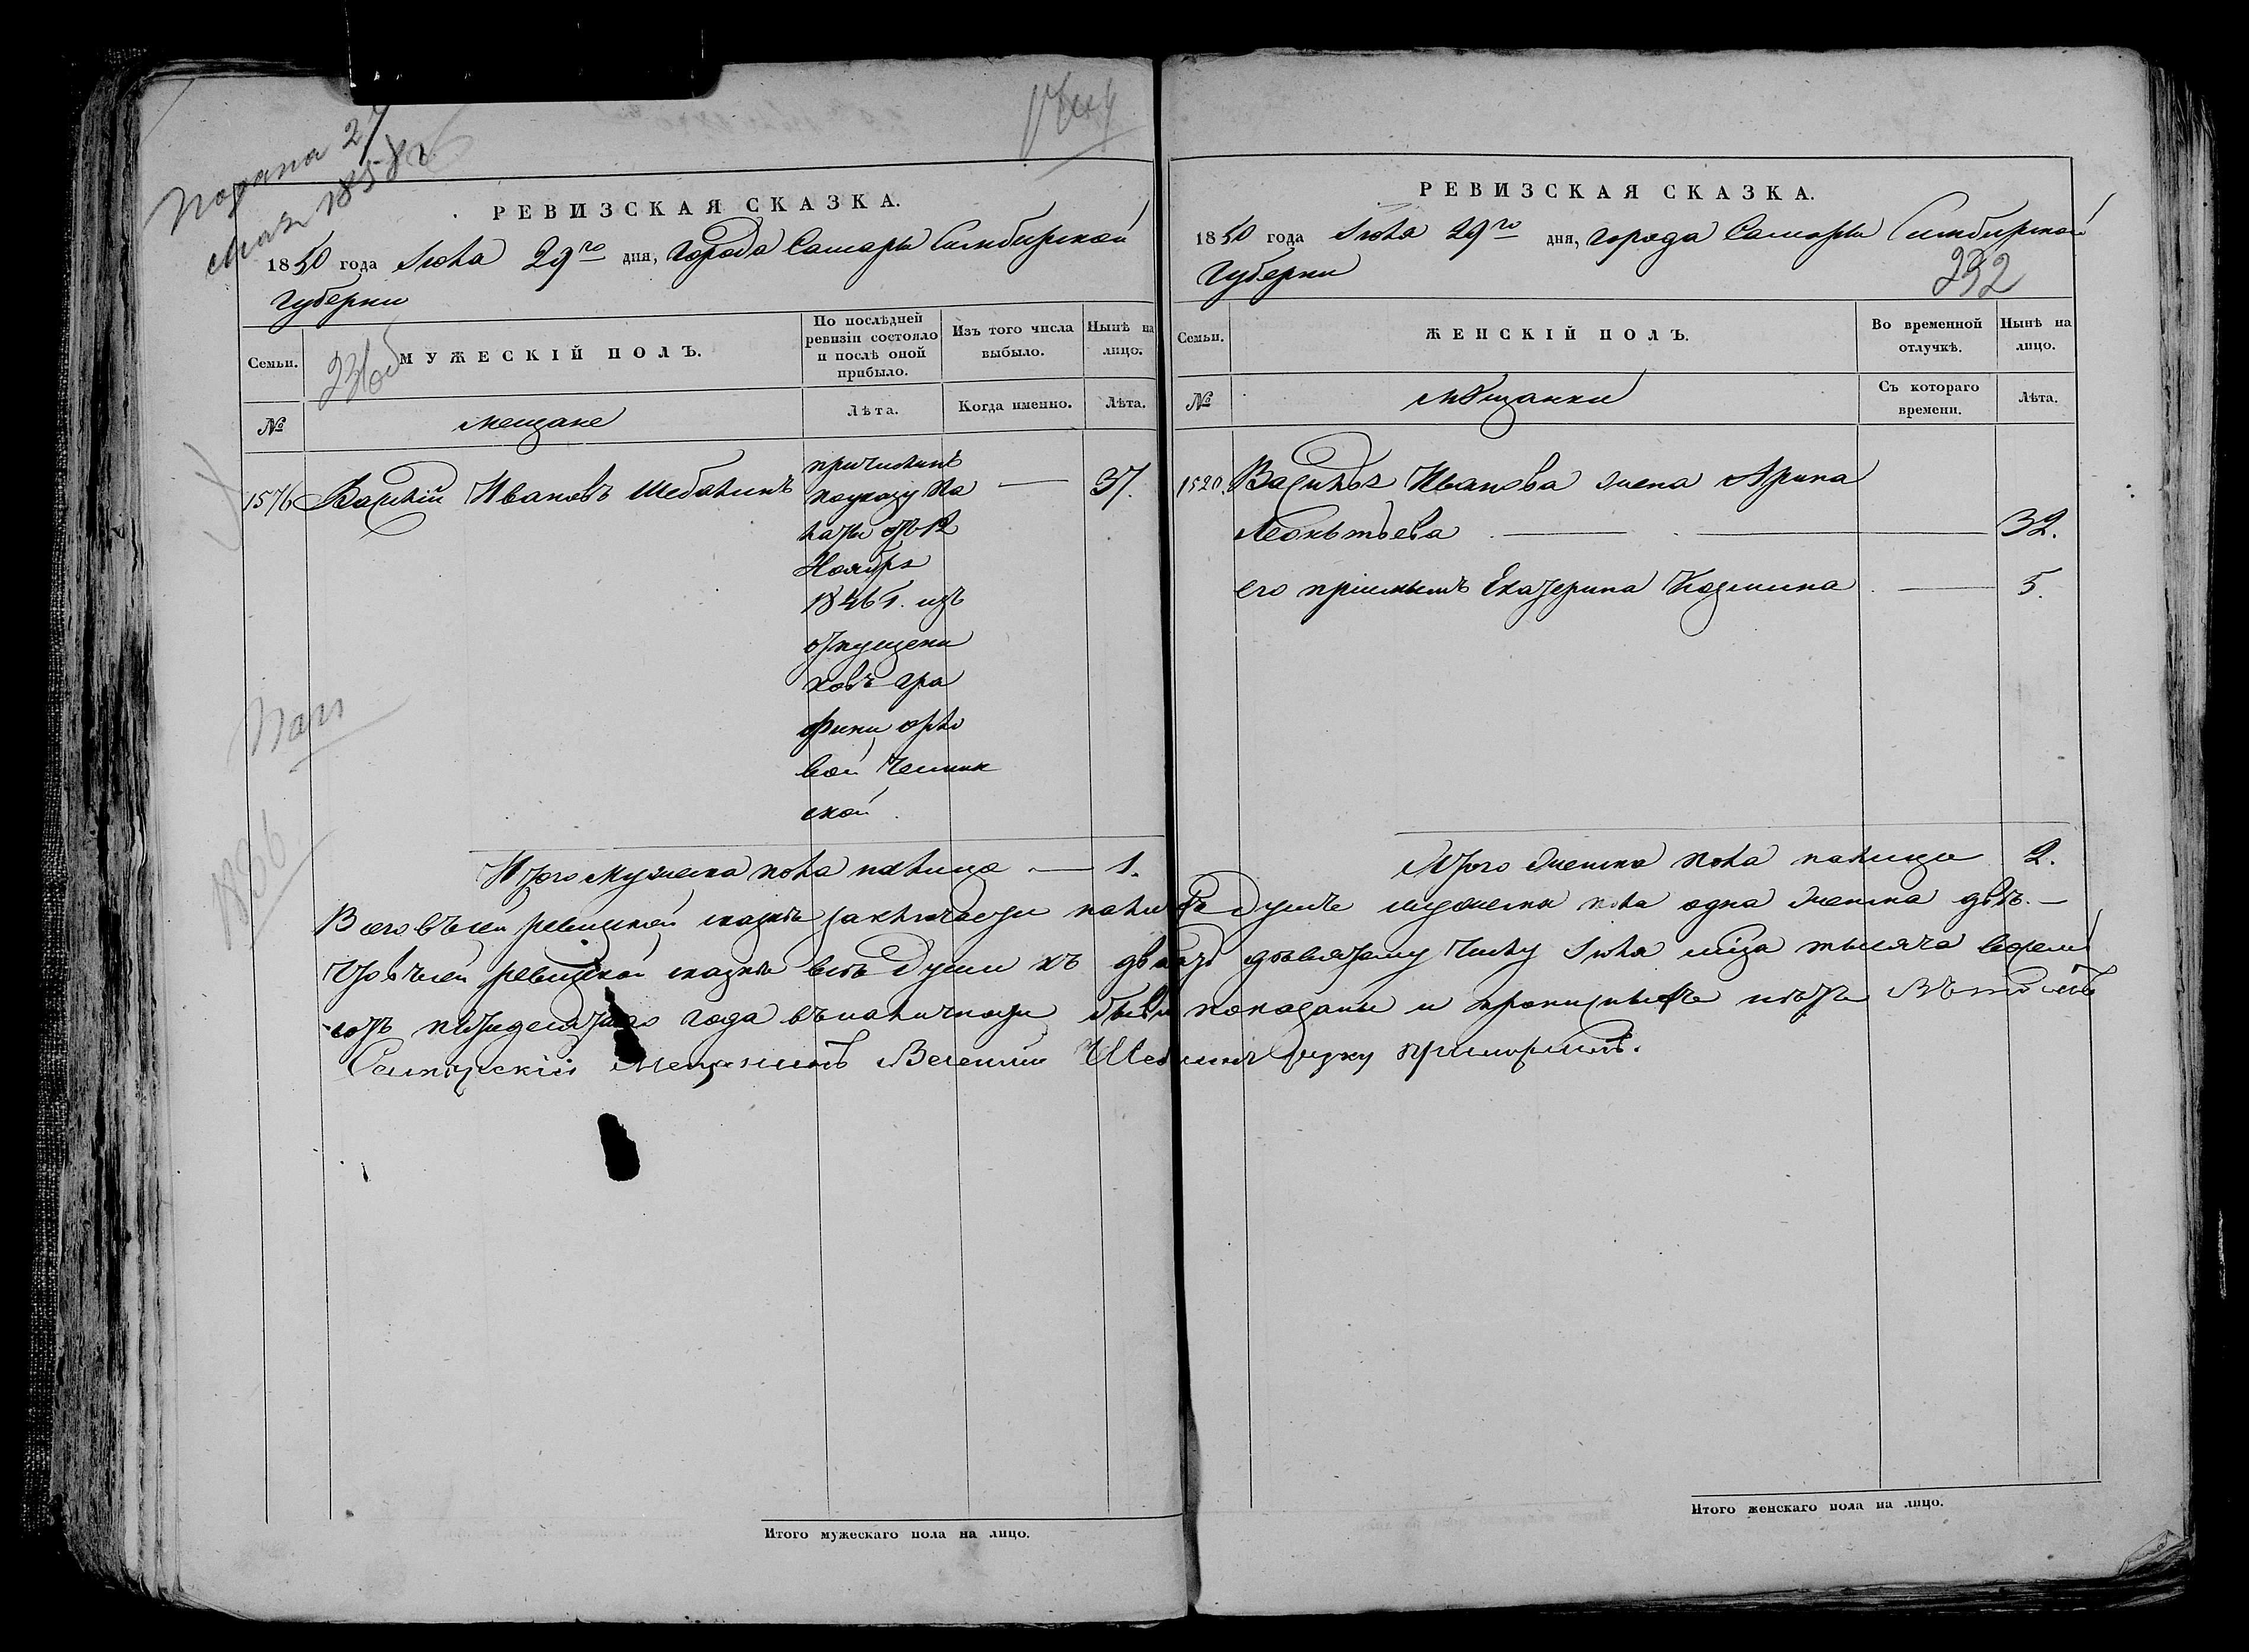 Подана 27
мая 1858 г.
РЕВИЗСКАЯ СКАЗКА.
1850 года Іюля 29го дня, города Самары Симбирской
губерни
Семьи.
МУЖЕСКІЙ ПОЛЪ.
По послѣдней
ревизіи состояло
и послѣ оной
прибыло.
Изъ того числа
выбыло.
Нынѣ на
лицо.
№
мещане
Лѣта.
Когда именно.
Лѣта.
1576
Василій Ивановъ Шебалинъ
причисленъ
поуказу Па
латы отъ 12
Ноября
1846 г. изъ
отпущени
ковъ гра
фини орло
вой Чесмен
ской
—
37.
1836
Итого мужеска пола налицо — 1.
РЕВИЗСКАЯ СКАЗКА.
1850 года Іюля 29го дня, города Самары Симбирской
губерни
232
Семьи.
ЖЕНСКІЙ ПОЛЪ.
Во временной
отлучкѣ.
Нынѣ на
лицо.
№
мѣщанки
Съ котораго
времени.
Лѣта.
1520.
Василья Иванова жена Арина
Леонтьева — 32.
его пріемышъ Екатерина Козмина — 5.
Итого женска пола налицо 2.
Всего въсей ревизской сказкѣ заключается налицо Душъ мужеска пола одна женска двѣ. —
Что въсей ревизской сказкѣ всѣ Души къ двадцать девятому числу Іюля мца тысяча восемь
сотъ пятидесятаго года въналичности были показаны и прописныхъ нѣтъ Въ томъ
Самарскій Мещанинъ Василий Шебалинъ руку приложилъ.
Итого мужескаго пола на лицо.
Итого женскаго пола на лицо.